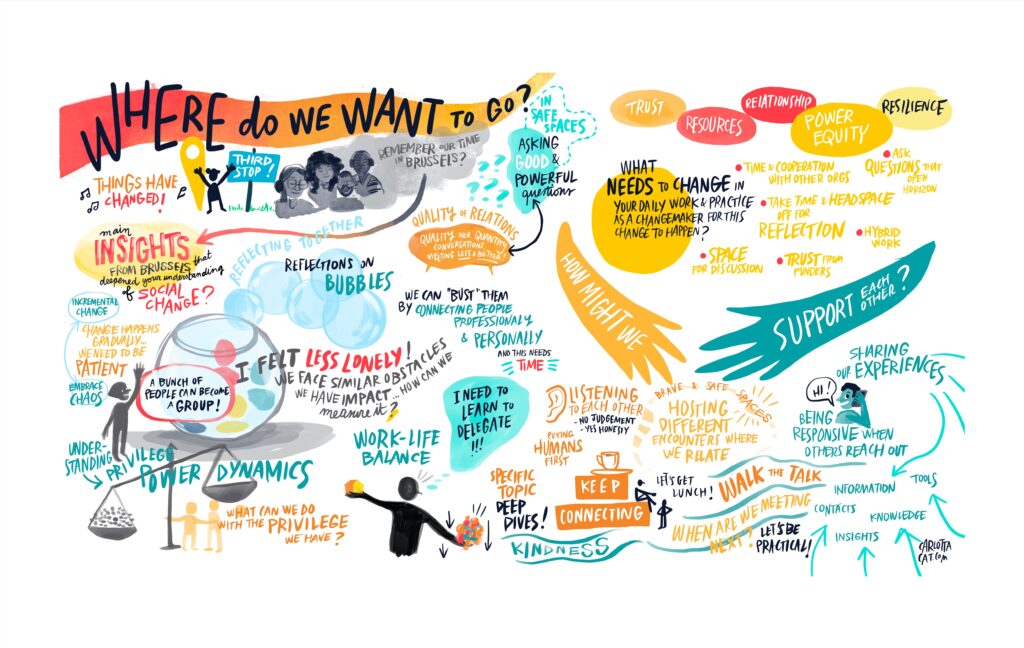 WHERE do WE WANT TO GO?
THINGS HAVE
CHANGED!
THIRD
STOP!
REMEMBER OUR TIME
IN BRUSSELS?
IN
SAFE
SPACES
ASKING
GOOD &
POWERFUL
questions
main
INSIGHTS
FROM BRUSSELS that
deepened your understanding
of SOCIAL
CHANGE?
REFLECTING TOGETHER
REFLECTIONS ON
BUBBLES
QUALITY OF RELATIONS
QUALITY OVER QUANTITY
CONVERSATIONS
MEETING LESS & BETTER!
WE CAN "BUST" THEM
BY CONNECTING PEOPLE
PROFESSIONALY
& PERSONALLY
AND THIS NEEDS
TIME
INCREMENTAL
CHANGE
CHANGE HAPPENS
GRADUALLY...
WE NEED TO BE
PATIENT
EMBRACE
CHAOS
A BUNCH OF
PEOPLE CAN BECOME
A GROUP!
I FELT LESS LONELY!
WE FACE SIMILAR OBSTACLES
WE HAVE IMPACT... HOW CAN WE
measure it?
UNDER-
STANDING PRIVILEGE
POWER DYNAMICS
WHAT CAN WE DO
WITH THE PRIVILEGE
WE HAVE?
WORK-LIFE
BALANCE
I NEED TO
LEARN TO
DELEGATE
!!!
SPECIFIC
TOPIC
DEEP
DIVES!
KINDNESS
TRUST
RESOURCES
RELATIONSHIP
POWER
EQUITY
RESILIENCE
WHAT
NEEDS TO CHANGE IN
YOUR DAILY WORK & PRACTICE
AS A CHANGEMAKER FOR THIS
CHANGE TO HAPPEN?
• TIME & COOPERATION
WITH OTHER ORGS
• ASK
QUESTIONS THAT
OPEN
HORIZON
• TAKE TIME & HEADSPACE
OFF FOR
REFLECTION
• HYBRID
WORK
• SPACE
FOR DISCUSSION
• TRUST FROM
FUNDERS
HOW MIGHT WE
SUPPORT EACH
OTHER?
LISTENING
TO EACH OTHER
- NO JUDGEMENT
- YES HONESTY
PUTTING
HUMANS
FIRST
BRAVE & SAFE SPACES
HOSTING
DIFFERENT
ENCOUNTERS WHERE
WE RELATE
KEEP
CONNECTING
LET'S GET
LUNCH!
WALK THE TALK
WHEN ARE WE MEETING
NEXT?
LET'S BE
PRACTICAL!
SHARING
OUR EXPERIENCES
HI!
BEING
RESPONSIVE WHEN
OTHERS REACH OUT
INFORMATION
TOOLS
CONTACTS
KNOWLEDGE
INSIGHTS
CARLOTTA
CAT.COM